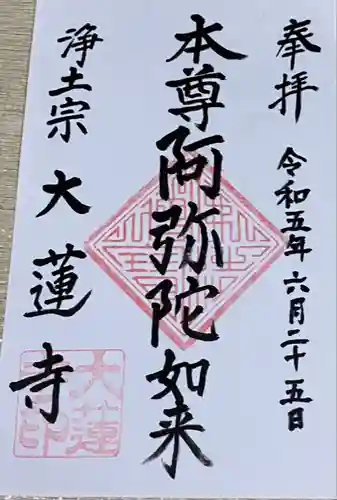 奉拝
令和五年 六月二十五日
本尊阿弥陀如来
浄土宗
大蓮寺